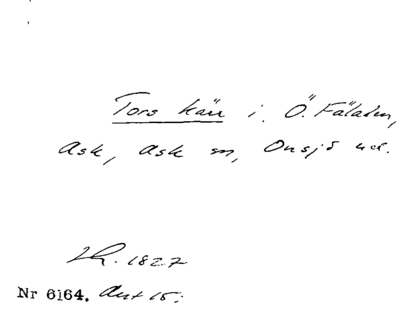 Tors kärr i Ö. Fäladen,
Ask, Ask sn, Onsjö hd.
LR. 1827
Nr 6164. Ant 15: